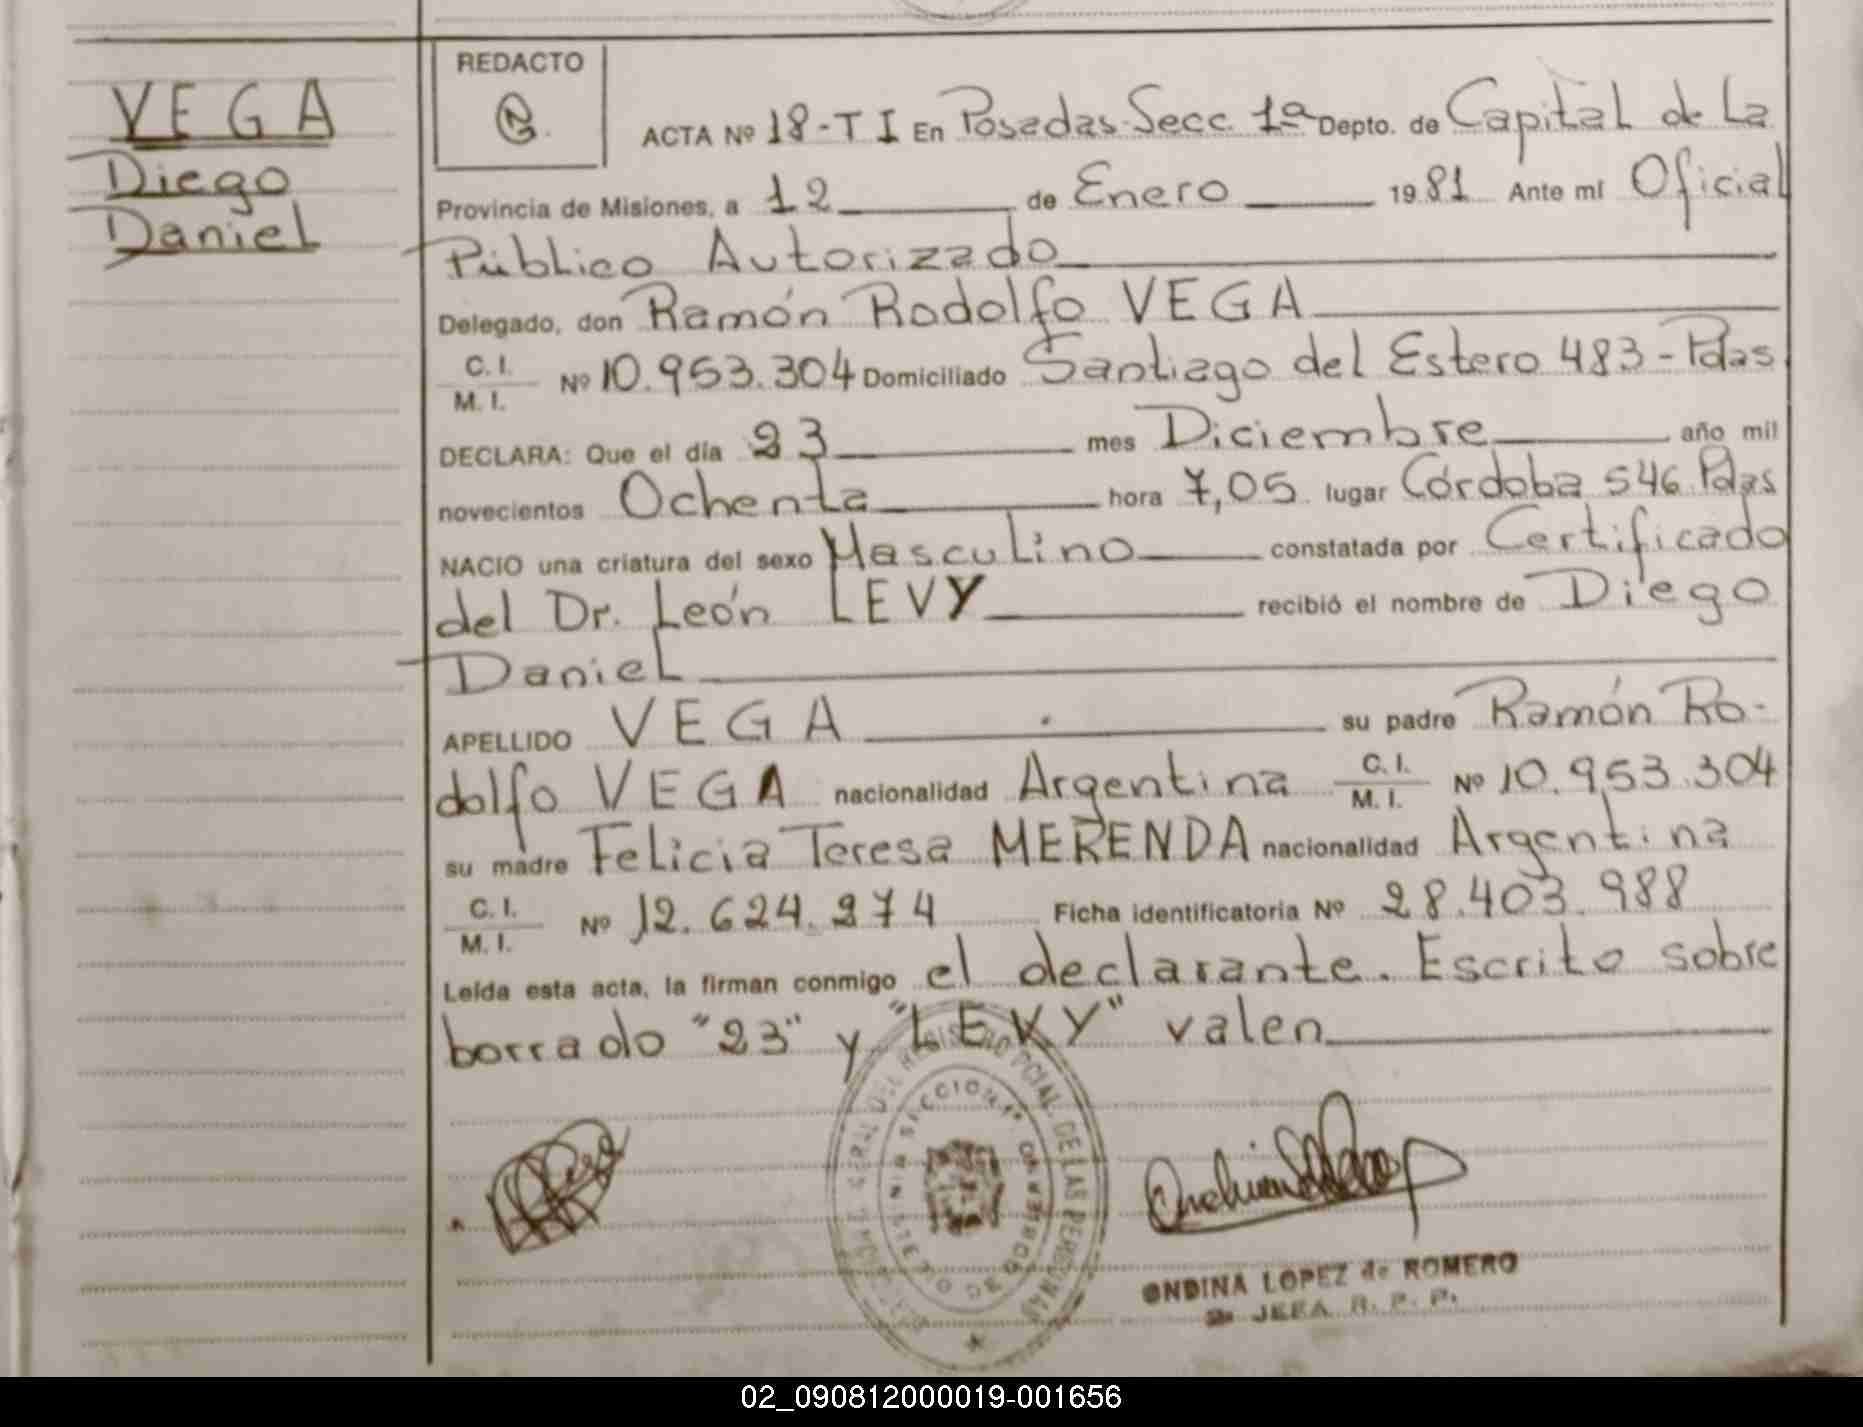 VEGA
Diego
Daniel
REDACTO
ACTA Nº 18-TI En Posadas-Secc. 1ª Depto. de Capital de La
Provincia de Misiones, a 12 de Enero 1981 Ante mí Oficial
Público Autorizado
Delegado, don Ramón Rodolfo VEGA
C. I.
M. I. Nº 10.953.304 Domiciliado Santiago del Estero 483-Pdas
DECLARA: Que el día 23 mes Diciembre año mil
novecientos Ochenta hora 7,05 lugar Córdoba 546 Pdas
NACIO una criatura del sexo Masculino constatada por Certificado
del Dr. León LEVY recibió el nombre de Diego
Daniel
APELLIDO VEGA su padre Ramón Ro-
dolfo VEGA nacionalidad Argentina C. I. M. I. Nº 10.953.304
su madre Felicia Teresa MERENDA nacionalidad Argentina
C. I.
M. I. Nº 12.624.274 Ficha identificatoria Nº 28.403.988
Leída esta acta, la firman conmigo el declarante. Escrito sobre
borrado "23" y "LEVY" valen
ONDINA LOPEZ de ROMERO
JEFA R. P. P.
02_090812000019-001656